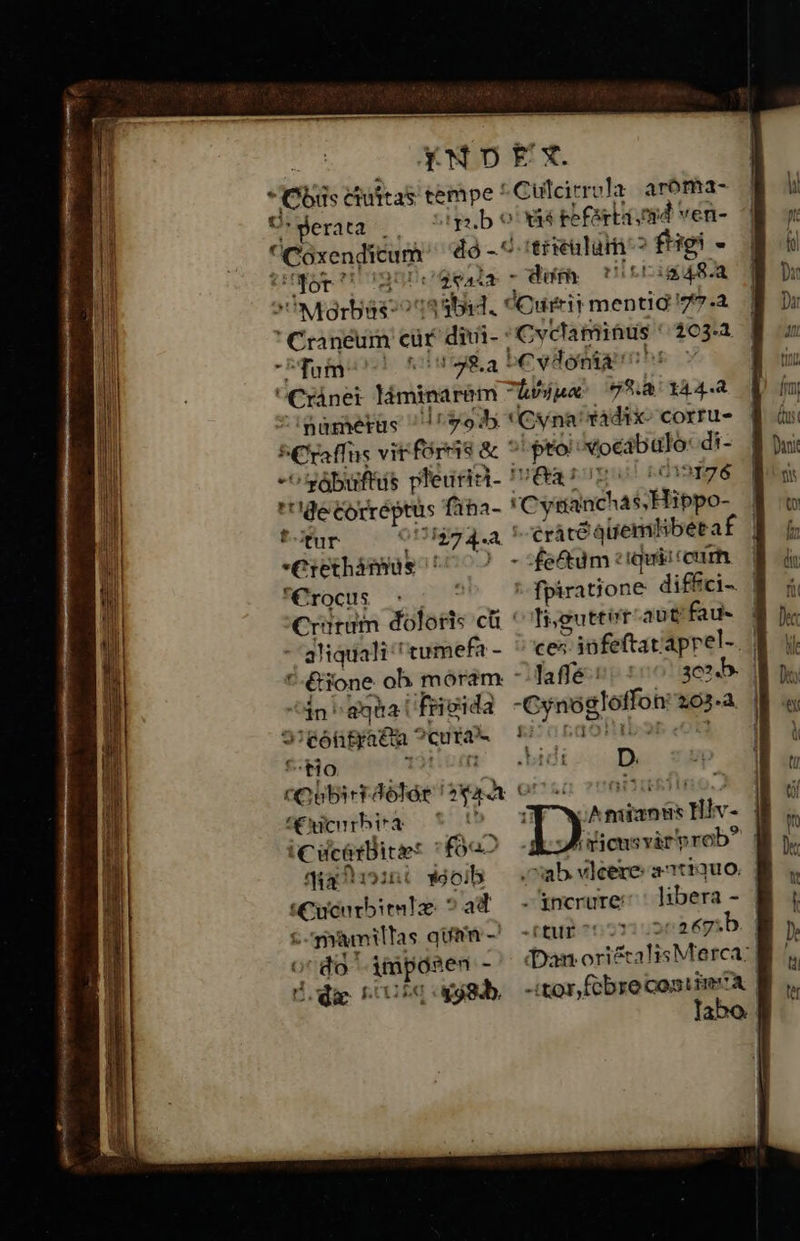 INDEX.
Cous ciuitas tempe-
rata 12.b
Coxendicum dó-
lor
Morbus ibid.
Craneum cur diui-
sum 78.a
Cránei láminarum
númerus 79.b
Crassus vir fortis &
robustus pleuriti-
de corréptus sana-
tur 274.a
Crethámus
Crocus
Crurum doloris cũ
aliquali tumefa-
ctione ob moram
in aqua frigida
contracta cura-
tio
Cubiti dólor 254.a
Cucurbita
Cucurbitæ
Cucurbitulæ ad
mamillas quan-
do impónen-
dæ 498.b.
Culcitrula aroma-
tis referta, ad ven-
triculum frigi-
dum 248.a
Curtij mentio 77.a
Cyclaminus 103.a
Cydonia
78.a 144.a
Cyna radix corru-
pto vocabulo di-
cta 176
Cynánchas, Hippo-
crate quemlibet af-
fectum qui cum
spiratione diffici-
li, guttur aut fau-
ces infestat appel-
lasse 302.b.
Cynoglosson 203.a
D.
DAmianus Illy-
ricus vir prob°
ab vlcere antiquo.
in crure libera-
tur 267.b
Dan oriẽtalis Merca-
tor, febre continua
labo